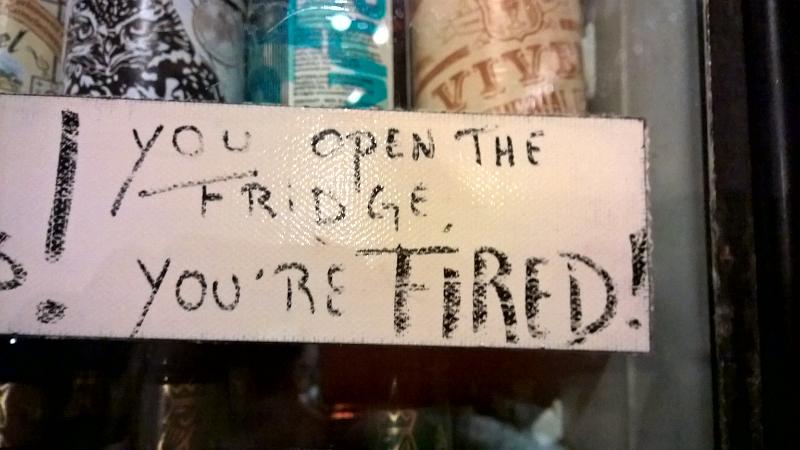 VIVE
! YOU OPEN THE
FRIDGE,
YOU'RE FIRED!